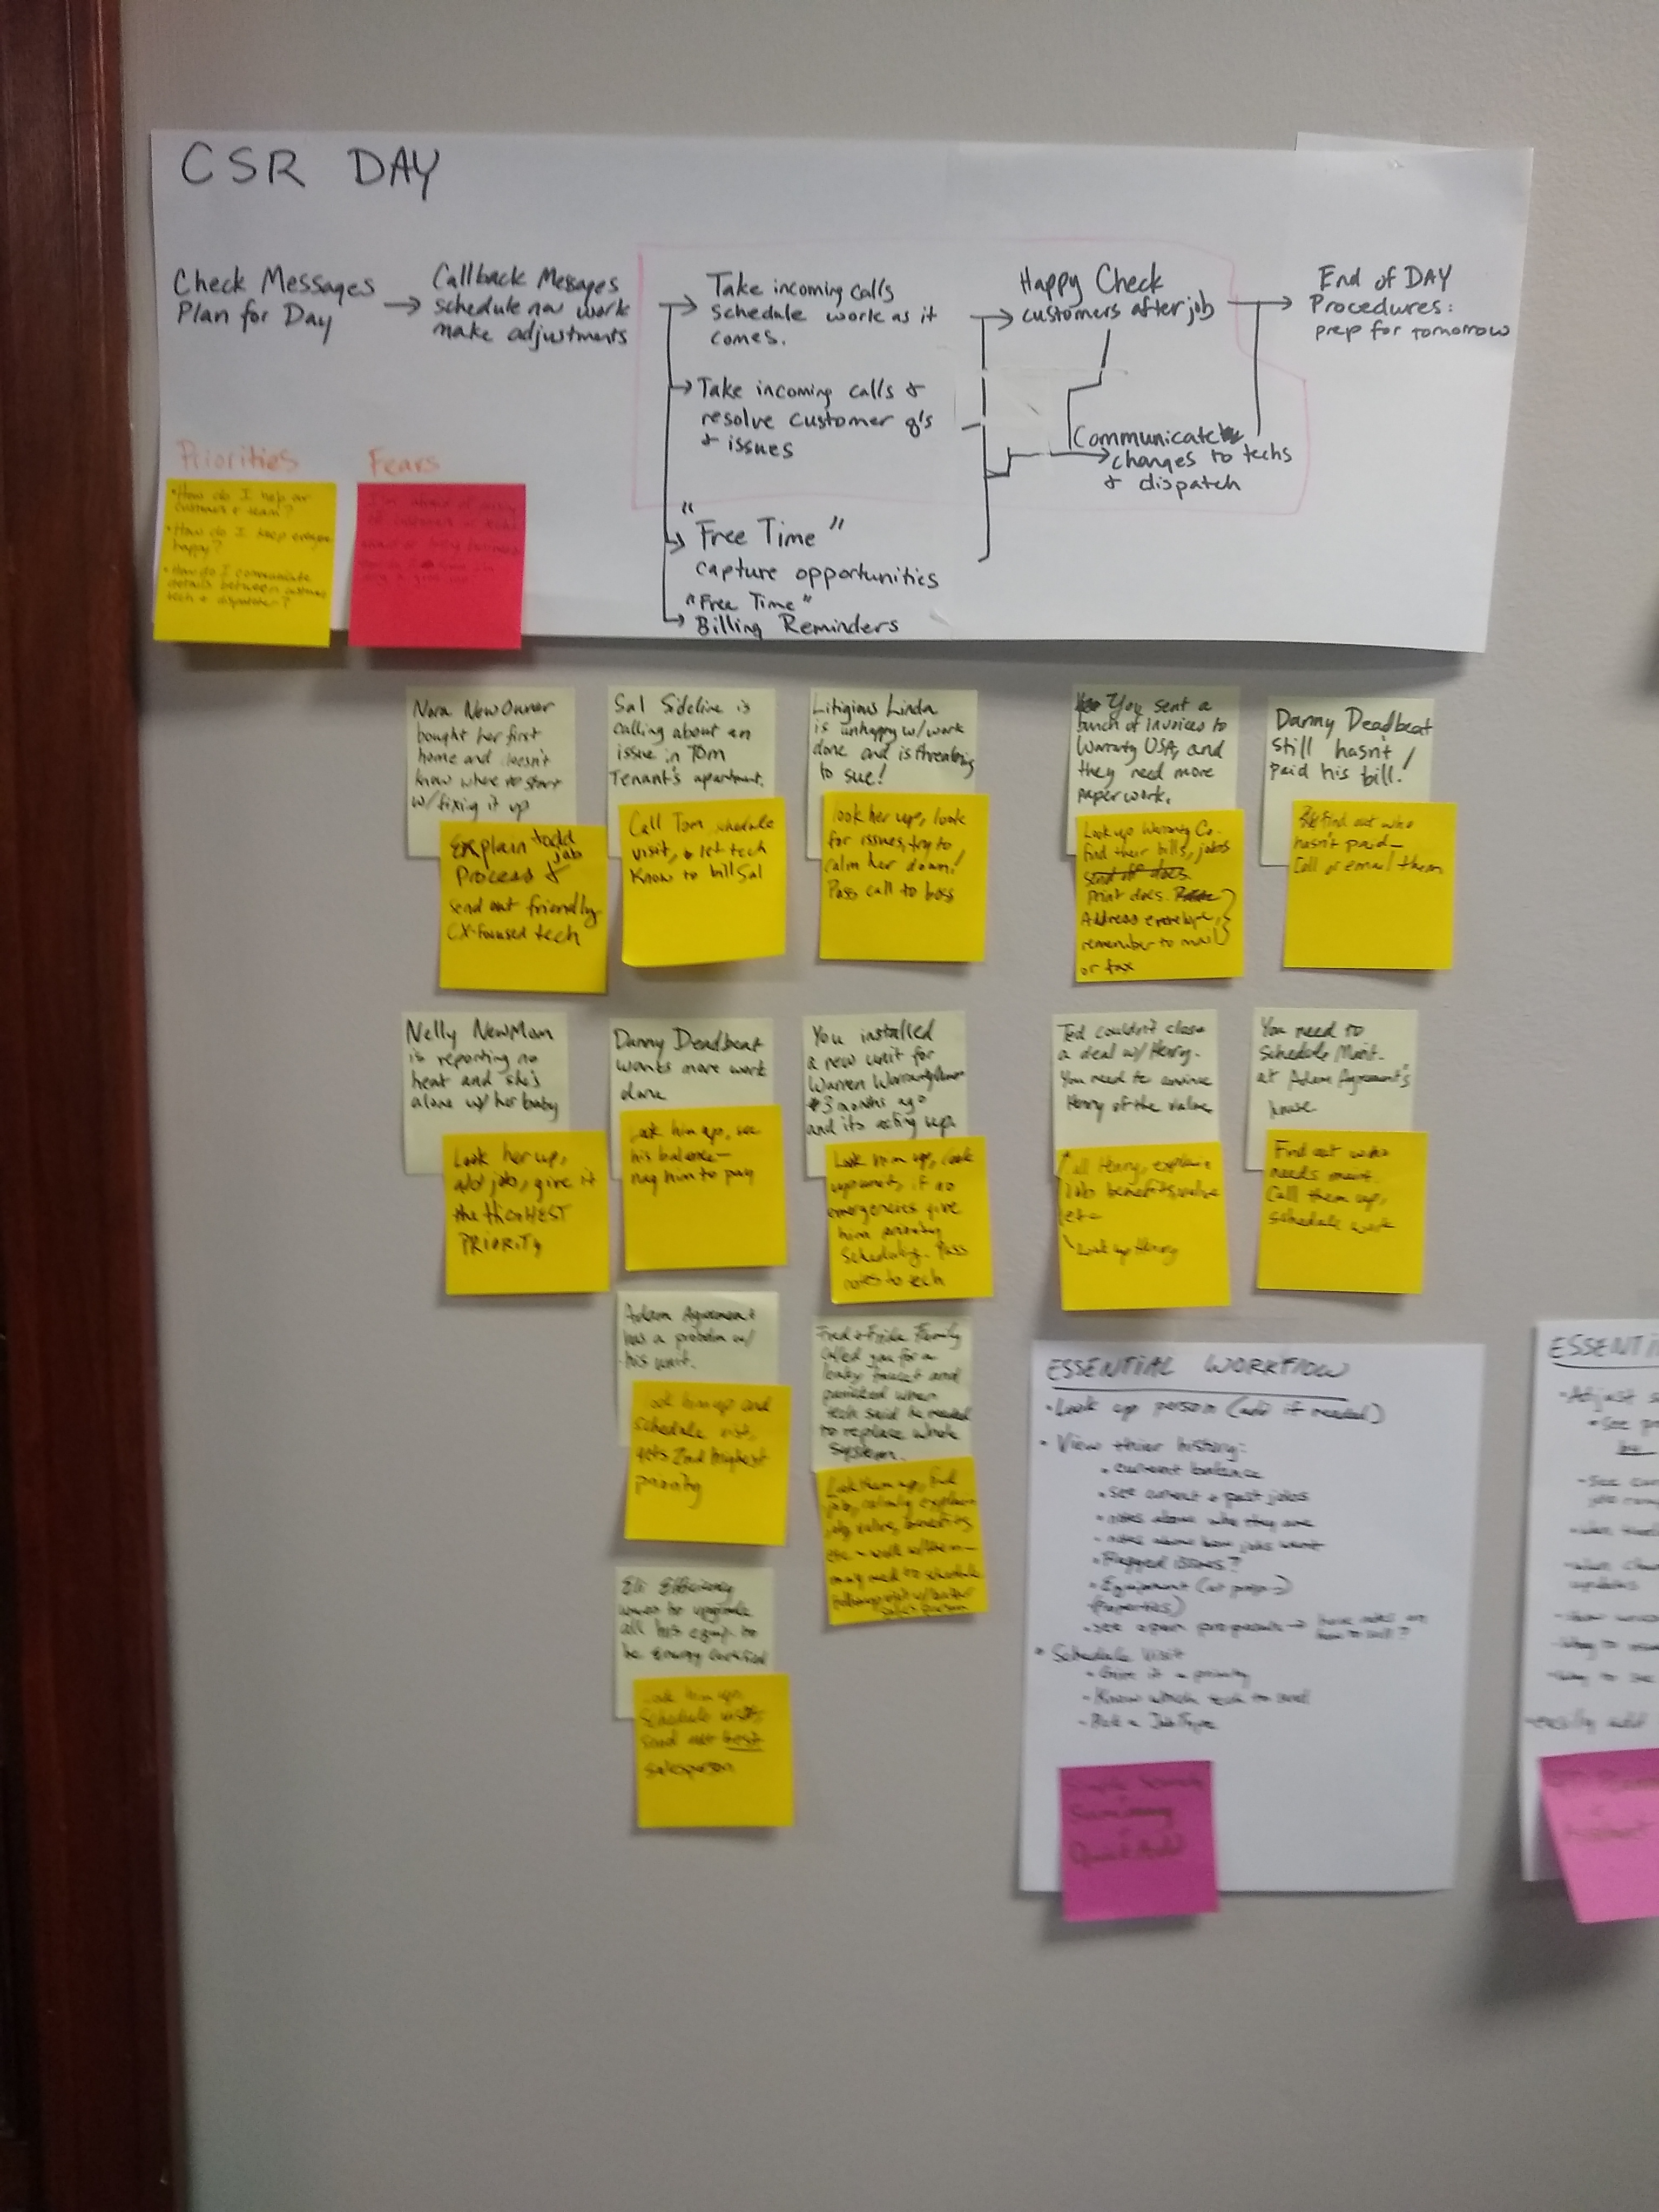 CSR DAY
Check Messages
Plan for Day
Callback Messages
schedule new work
make adjustments
Take incoming calls
schedule work as it
comes.
Take incoming calls &
resolve customer q's
& issues
"Free Time"
capture opportunities
"Free Time"
Billing Reminders
Happy Check
customers after job
Communicate
changes to techs
& dispatch
End of DAY
Procedures:
prep for tomorrow
Priorities
• How do I help our
customers & team?
• How do I keep everyone
happy?
• How do I communicate
details between customer
tech & dispatcher?
Fears
Nora NewOwner
bought her first
home and doesn't
know where to start
w/ fixing it up
Explain
job
process &
send out friendly
CX-focused tech
Sal Sideline is
calling about an
issue in Tom
Tenant's apartment.
Call Tom, schedule
visit, & let tech
know to bill Sal
Litigious Linda
is unhappy w/ work
done and is threatening
to sue!
look her up, look
for issues, try to
calm her down!
Pass call to boss
You sent a
bunch of invoices to
Warranty USA, and
they need more
paperwork.
Look up Warranty Co.
find their bills, jobs
send off docs.
print docs.
Address envelope,
remember to mail
or fax
Danny Deadbeat
still hasn't
paid his bill!
find out who
hasn't paid—
Call or email them
Nelly NewMom
is reporting no
heat and she's
alone w/ her baby
Look her up,
add job, give it
the HIGHEST
PRIORITY
Danny Deadbeat
wants more work
done
Look him up, see
his balance—
nag him to pay
You installed
a new unit for
Warren
3 months ago
and its acting up.
Look him up, look
up unit, if no
emergencies give
him priority
scheduling. Pass
notes to tech
Ted couldn't close
a deal w/ Henry.
You need to convince
Henry of the value.
Call Henry, explain
job benefits, value
etc
Look up Henry
You need to
Schedule Maint.
at Adam Agreement's
house.
Find out who
needs maint.
Call them up,
schedule work
Adam Agreement
has a problem w/
his unit.
Look him up and
schedule visit,
gets 2nd highest
priority
Fred & Frida Family
called you for a
leaky faucet and
panicked when
tech said he needed
to replace whole
system.
Look them up, find
job, calmly explain
job value, benefits
etc – work w/ them—
may need to schedule
followup visit w/ better
sales person
Eli Efficiency
wants to upgrade
all his equip. to
be Energy Certified
Look him up,
schedule visit,
send out best
salesperson
ESSENTIAL WORKFLOW
• Look up person (add if needed)
• View thier history:
• current balance
• see current & past jobs
• notes about who they are
• notes about how jobs went
• Flagged issues?
• Equipment
(Properties)
• see open proposals → have notes on
how to sell?
• Schedule Visit
• Give it a priority
• Know which tech to send
• Pick a Job Type
Summary
Quick Add
ESSENTI
• Adjust s
• See pr
by
• See cur
updates
• easily add